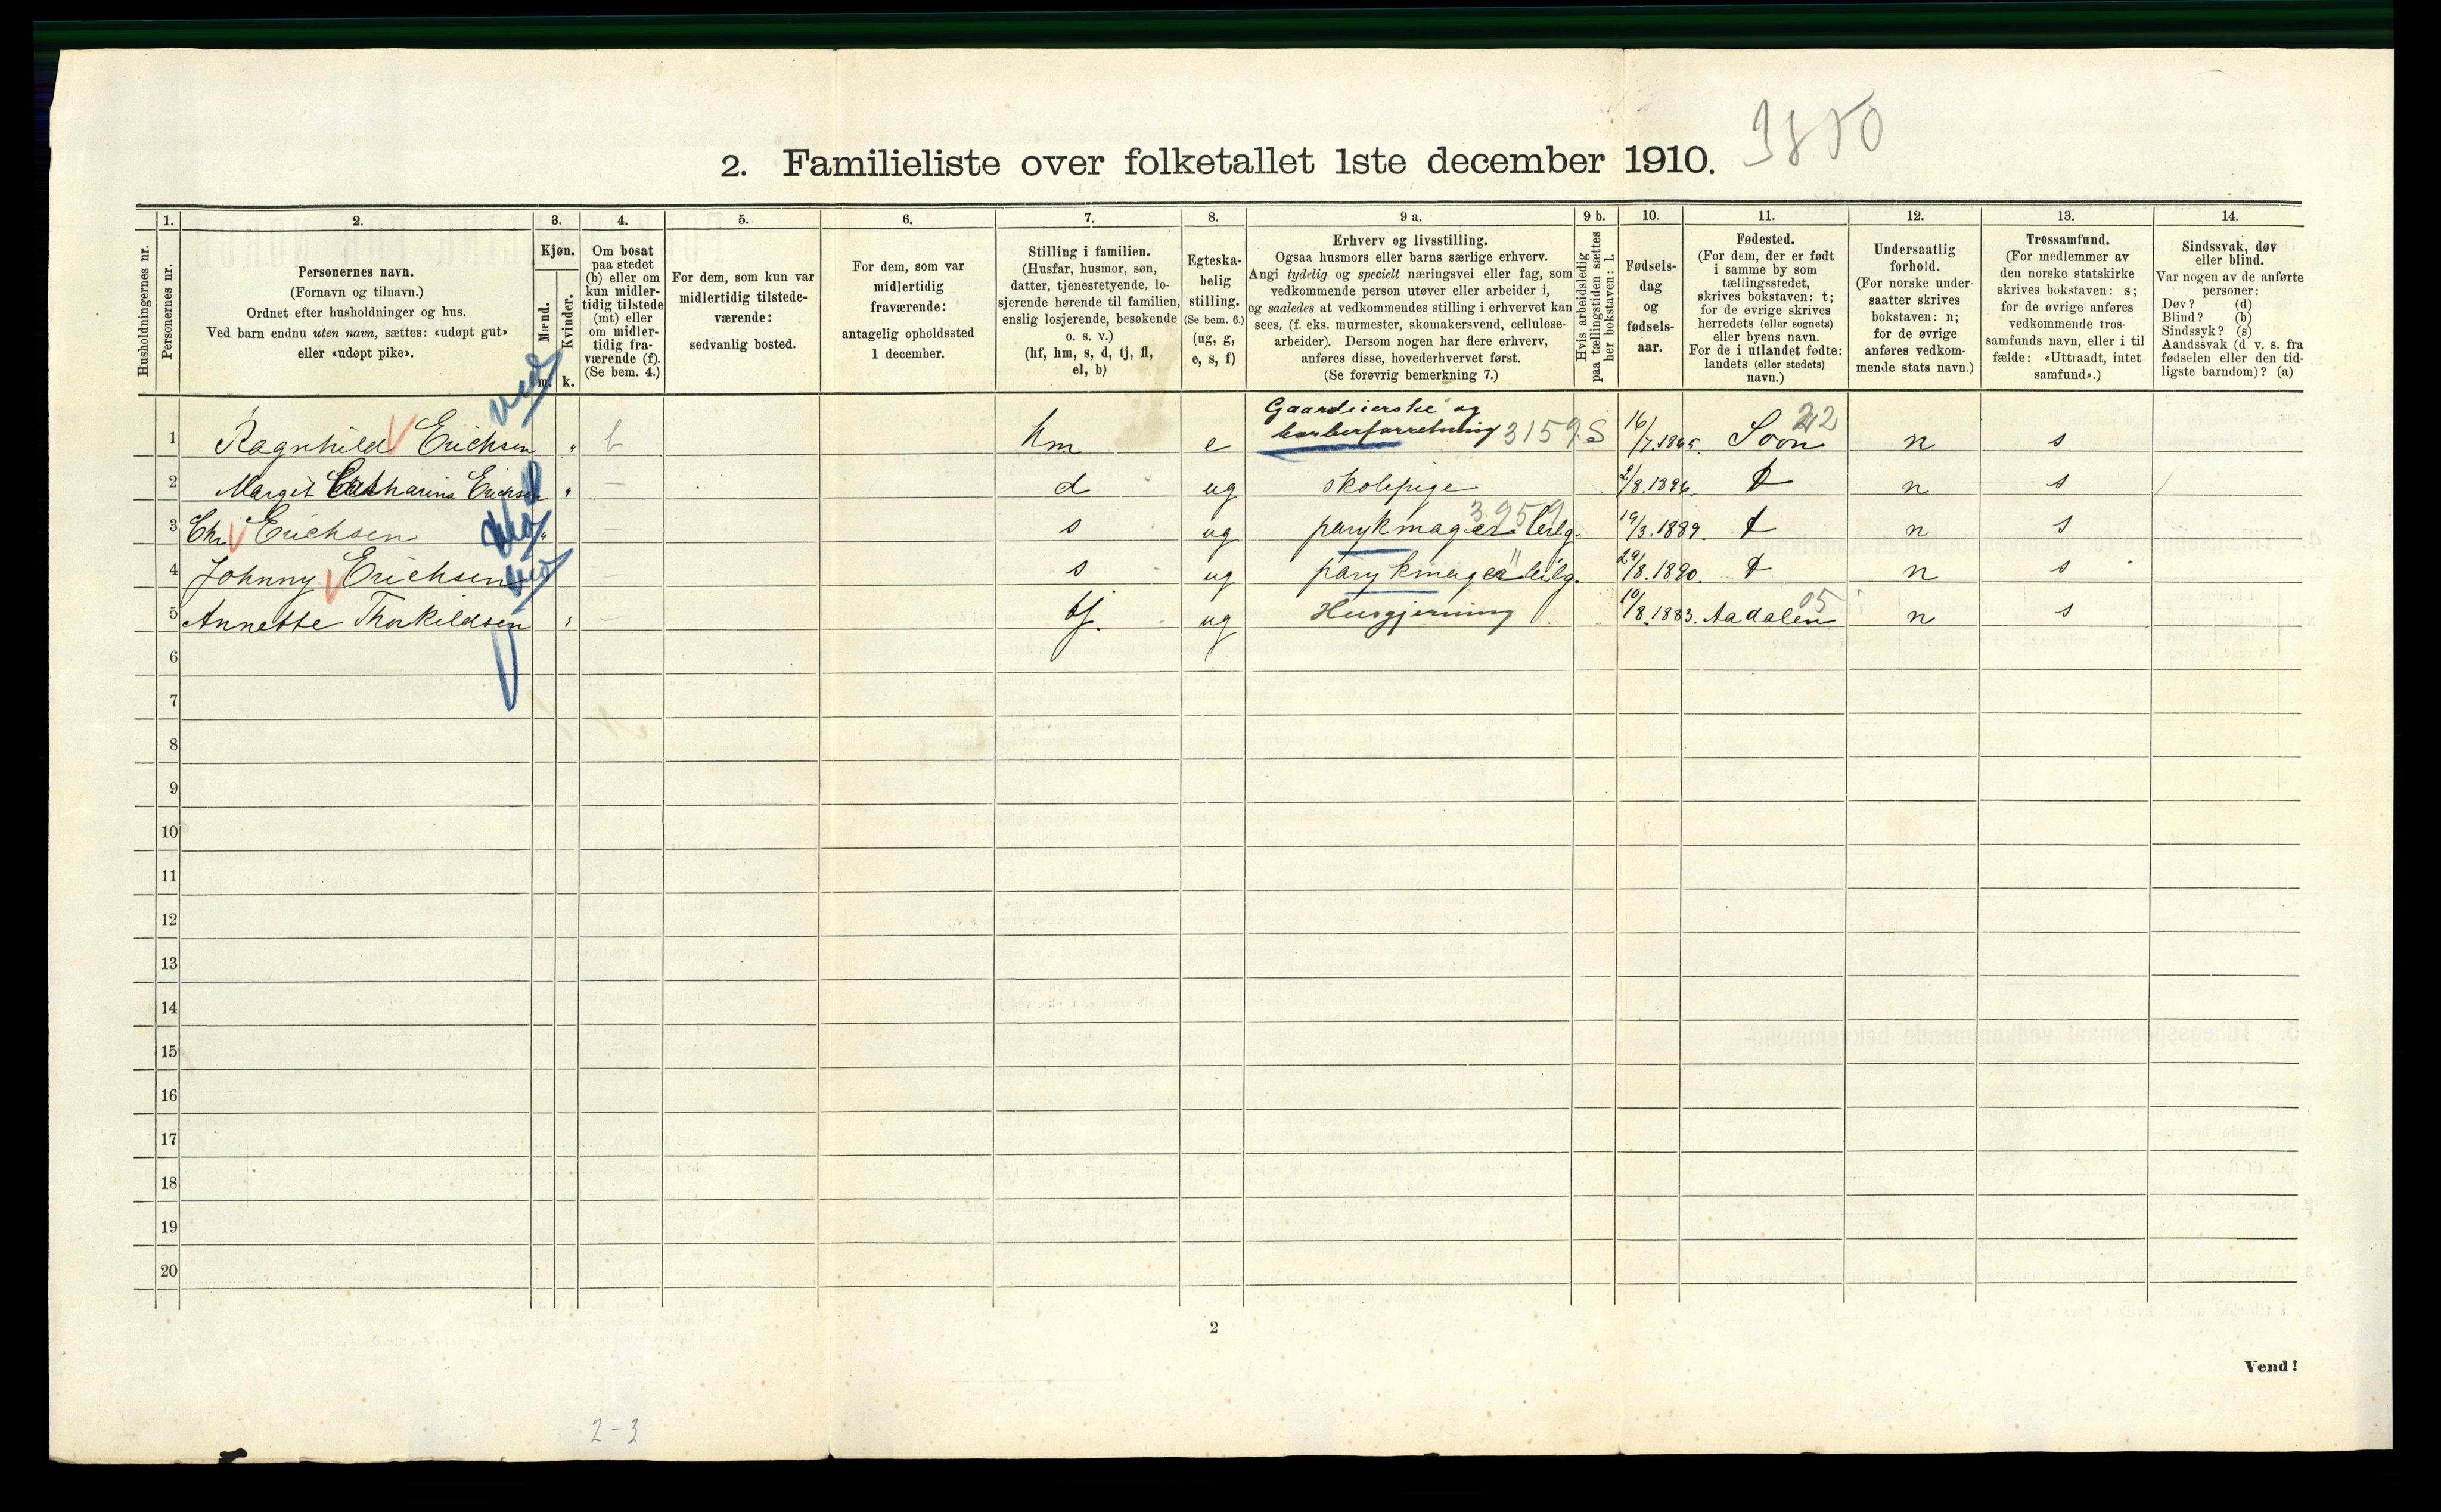 3850
2. Familieliste over folketallet 1ste december 1910.
Husholdningernes nr.
1.
Personernes nr.
2.
Personernes navn.
(Fornavn og tilnavn.)
Ordnet efter husholdninger og hus.
Ved barn endnu uten navn, sættes: «udøpt gut»
eller «udøpt pike».
3.
Kjøn.
Mænd.
Kvinder.
m. k.
4.
Om bosat
paa stedet
(b) eller om
kun midler-
tidig tilstede
(mt) eller
om midler-
tidig fra-
værende (f).
(Se bem. 4.)
5.
For dem, som kun var
midlertidig tilstede-
værende:
sedvanlig bosted.
6.
For dem, som var
midlertidig
fraværende:
antagelig opholdssted
1 december.
7.
Stilling i familien.
(Husfar, husmor, søn,
datter, tjenestetyende, lo-
sjerende hørende til familien,
enslig losjerende, besøkende
o. s. v.)
(hf, hm, s, d, tj, fl,
el, b)
8.
Egteska-
belig
stilling.
(Se bem. 6.)
(ug, g,
e, s, f)
9 a.
Erhverv og livsstilling.
Ogsaa husmors eller barns særlige erhverv.
Angi tydelig og specielt næringsvei eller fag, som
vedkommende person utøver eller arbeider i,
og saaledes at vedkommendes stilling i erhvervet kan
sees, (f. eks. murmester, skomakersvend, cellulose-
arbeider). Dersom nogen har flere erhverv,
anføres disse, hovederhvervet først.
(Se forøvrig bemerkning 7.)
9 b.
Hvis arbeidsledig
paa tællingstiden sættes
her bokstaven: l.
10.
Fødsels-
dag
og
fødsels-
aar.
11.
Fødested.
(For dem, der er født
i samme by som
tællingsstedet,
skrives bokstaven: t;
for de øvrige skrives
herredets (eller sognets)
eller byens navn.
For de i utlandet fødte:
landets (eller stedets)
navn.)
12.
Undersaatlig
forhold.
(For norske under-
saatter skrives
bokstaven: n;
for de øvrige
anføres vedkom-
mende stats navn.)
13.
Trossamfund.
(For medlemmer av
den norske statskirke
skrives bokstaven: s;
for de øvrige anføres
vedkommende tros-
samfunds navn, eller i til
fælde: «Uttraadt, intet
samfund».)
14.
Sindssvak, døv
eller blind.
Var nogen av de anførte
personer:
Døv? (d)
Blind? (b)
Sindssyk? (s)
Aandssvak (d v. s. fra
fødselen eller den tid-
ligste barndom)? (a)
Gaardeierske og
1 Ragnhild Erichsen " b hm e barberforretning 3159 S 16/7.1865. Soon 22 n s
2 Margit Catharina Erichsen " — d ug skolepige 2/8.1896. t n s
3 Chr Erichsen " — s ug parykmager 3959 19/3.1889. t n s
4 Johnny Erichsen — s ug parykmager " 29/8.1890. t n s
5 Annette Thorkildsen — tj. ug Husgjerning 10/8.1883. Aadalen 05 n s
6
7
8
9
10
11
12
13
14
15
16
17
18
19
20
2
Vend!
2-3